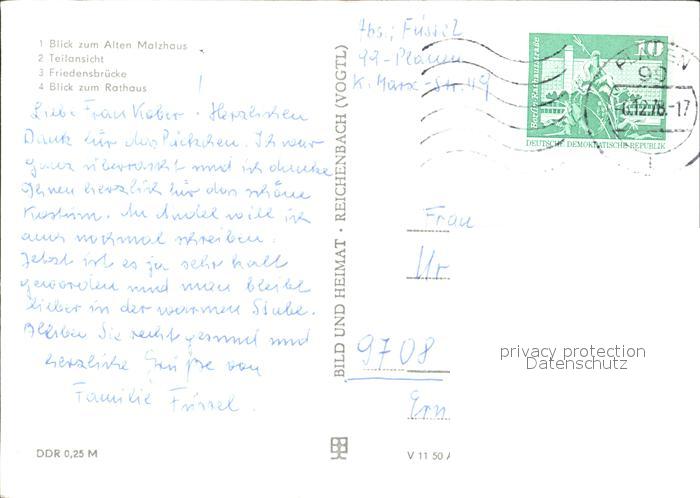 1 Blick zum Alten Malzhaus
2 Teilansicht
3 Friedensbrücke
4 Blick zum Rathaus
Liebe Frau Kober! Herzlichen
Dank für das Päckchen. Ich war
ganz überrascht und ich danke
Ihnen herzlich für das schöne
Kostüm. An Andel will ich
auch nochmal schreiben.
Jetzt ist es ja sehr kalt
geworden und man bleibt
lieber in der warmen Stube.
Bleiben Sie recht gesund und
herzliche Grüße von
Familie Füssel.
DDR 0,25 M
BILD UND HEIMAT · REICHENBACH (VOGTL)
Abs.: Füssel
99-Plauen
K. Marx-Str. 49
Berlin, Rathausstraße
10
DEUTSCHE DEMOKRATISCHE REPUBLIK
PLAUEN
99
.12.78.-17
1
Frau
Ur
9708
Ern
privacy protection
Datenschutz
V 11 50 A